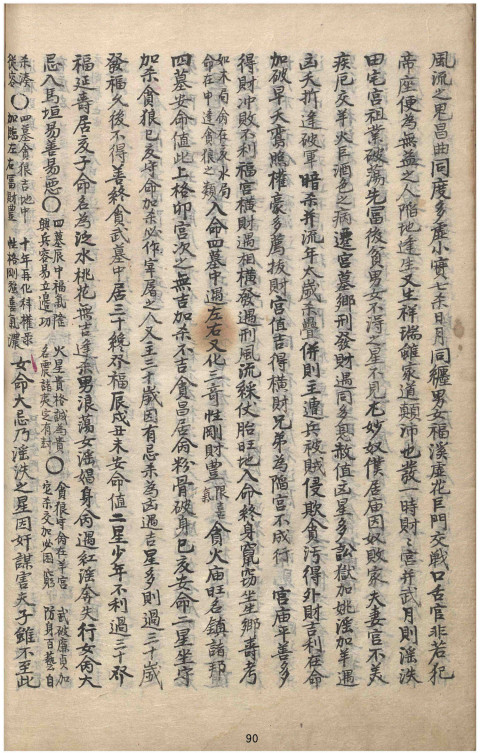 風流之鬼昌曲同度多虛小實七杀日月同纏男女福溪虛花巨門交戰口舌官非若犯
帝座便為無益之人陷地逢生又生祥瑞雖家道顛沛也發一時財財宮并武月則淫泆
田宅宮祖業破蕩先富後貧男女不淂之星不見尤妙奴僕居庙因奴敗家夫妻官不美
疾厄交羊火巨酒色之病遷宮墓鄉刑發財遇同多忌赦值凶星多訟獄加姚淫加羊遇
凶夭折逢破軍暗杀并流年太歲杀疊併則主遭兵被賊侵欺貪污得外財吉利在命
加破早夭鸞賜權豪多萬拔財宮值吉得橫財兄弟為陷宮不成行 宮庙平善多
得財冲敗不利福宮橫財遇相橫發遇刑風流綵仗胎旺地入命終身窮窃坐生鄉壽考
如木局命在亥水局
命在申逢貪狼之類 入命四墓中遇左右又化三奇性剛財豐 貪火庙旺名鎮諸邦
四墓安命值此上格卯宮次之無吉加杀不吉貪昌居命粉骨破身巳亥安命二星坐守
加杀貪狼巳亥守命加杀必作宰屠之人又主三十歲因有忌杀為凶遇吉星多則過三十歲
發福久後不得善終貪武墓中居三十終發福辰戌丑未安命值二星少年不利過三十發
福延壽居亥子命名為泛水桃花無吉逢杀男浪蕩女淫娼身命遇紅淫奔失行女命大
忌入馬垣易善易惡〇 四墓辰中福氣隂
興兵容易立邊功 火星貴格誠為貴
名震諸夷定有封 〇 貪狼守命在羊宮
定杀交加必困窮 武破廉貞加
防身百藝自
從容〇 四墓貪狼吉地中
加臨左右富財豐 十年再化科權祿
性格剛強喜氣濃 女命大忌乃淫泆之星因奸謀害夫子雖不至此
90